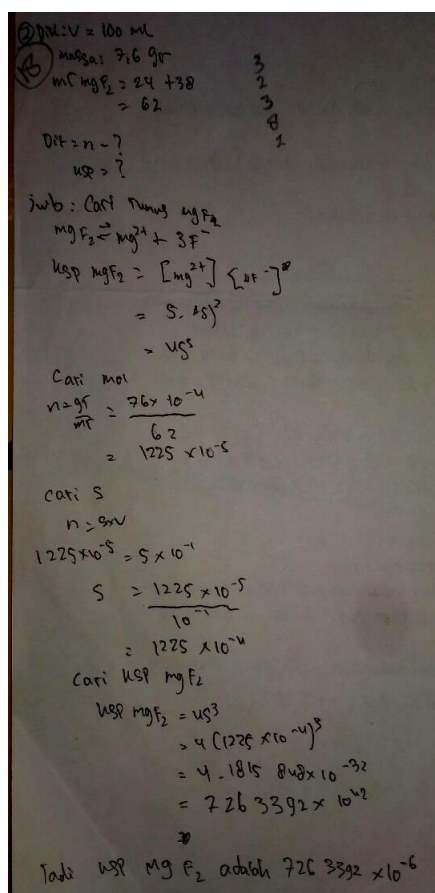 ② Dik: V = 100 ml
massa: 7,6 gr
mr mgF₂ = 24 + 38
= 62
3
2
3
8
2
Dit = n - ?
ksp = ?
jwb : Cari rumus mgF₂
mgF₂ ⇌ mg²⁺ + 3F⁻
Ksp mgF₂ = [mg²⁺] [2F⁻]²
= S. (2S)²
= 4S³
Cari mol
n = gr/mr = 76 x 10⁻⁴ / 62
= 1225 x 10⁻⁵
Cari S
n = S x V
1225 x 10⁻⁵ = S x 10⁻¹
S = 1225 x 10⁻⁵ / 10⁻¹
= 1225 x 10⁻⁴
Cari Ksp mgF₂
Ksp mgF₂ = 4S³
= 4 (1225 x 10⁻⁴)³
= 4. 1815 848 x 10⁻³²
= 726 3392 x 10⁻²
Jadi Ksp MgF₂ adalah 726 3392 x 10⁻⁶